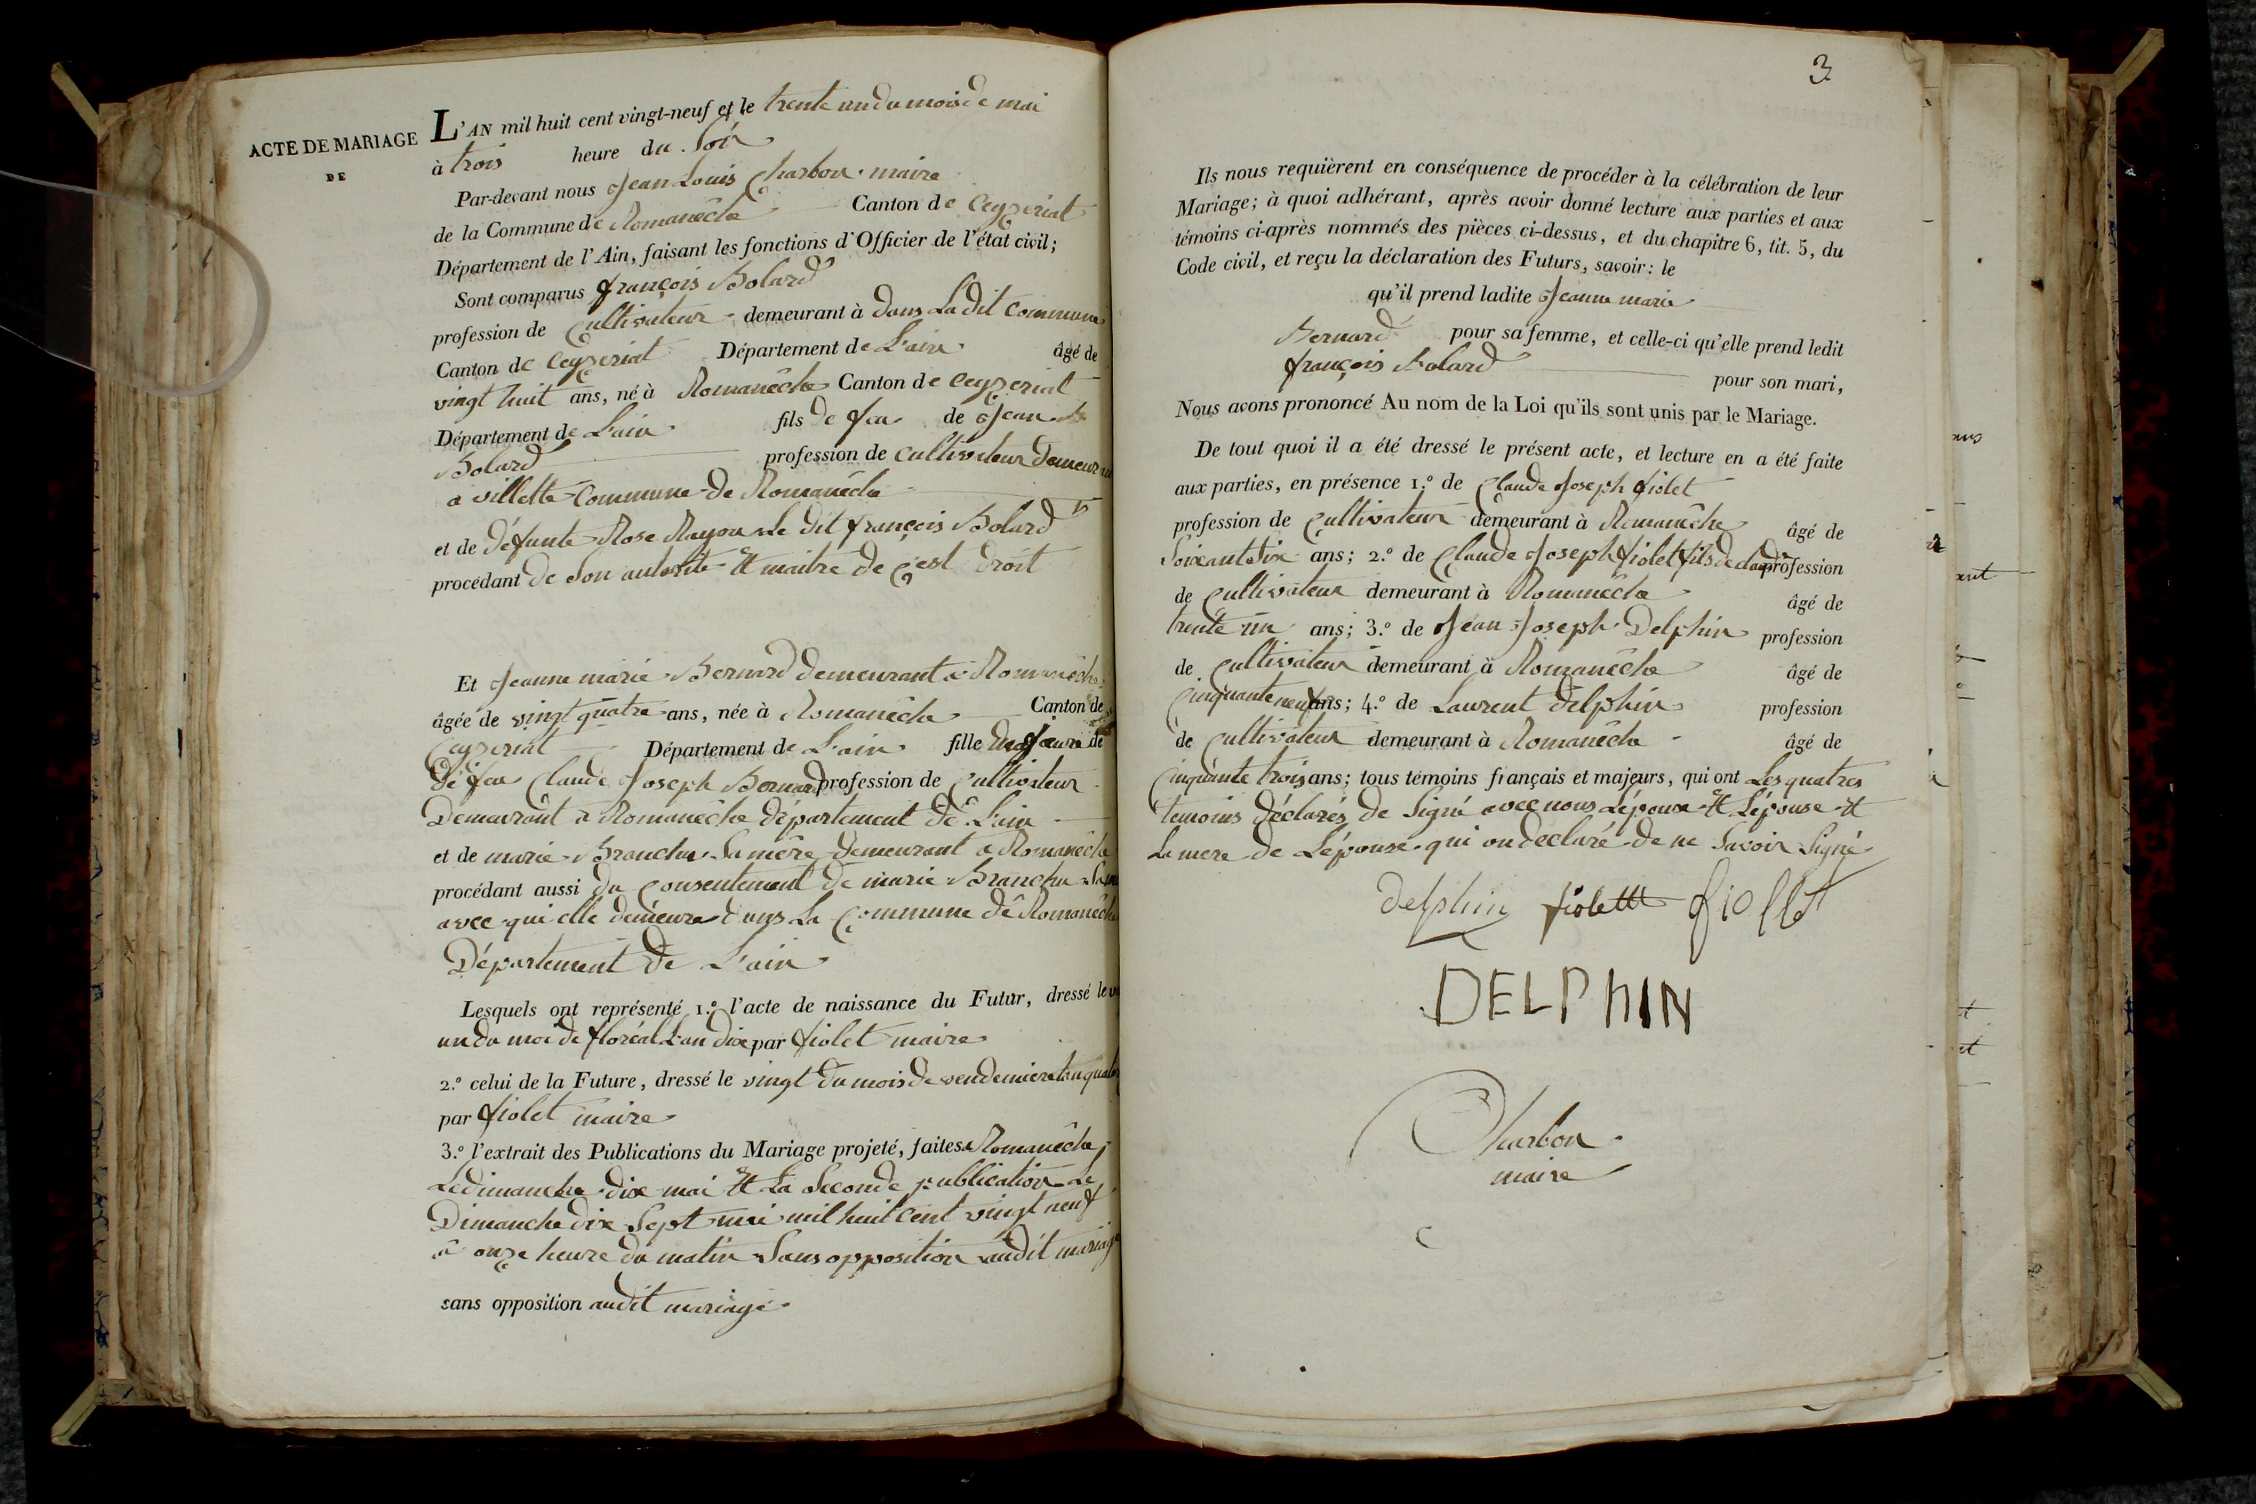 ACTE DE MARIAGE
DE
L'AN mil huit cent vingt-neuf et le trente un du mois de mai
à trois heure du Soir
Par-devant nous Jean Louis Charbon maire
de la Commune de Romanêche Canton de Ceyzeriat
Département de l'Ain, faisant les fonctions d'Officier de l'état civil;
Sont comparus françois Bolard
profession de Cultivateur demeurant à dans La dit Commune
Canton de Ceyzeriat Département de L'ain âgé de
vingt huit ans, né à Romanêche Canton de Ceyzeriat
Département de L'ain fils de feu de Jean
Bolard profession de Cultivateur demeurant
a villette Commune de Romanêche
et de défunte Rose Rayou Le dit françois Bolard
procédant de Son autorité et maitre de c'est droit
Et Jeanne marie Bernard demeurant a Romanêche
âgée de vingt quatre ans, née à Romanêche Canton de
Ceyzeriat Département de L'ain fille majeure de
de feu Claude Joseph Bernard profession de Cultivateur
Demeurant a Romanêche département de L'ain
et de marie Branchu Sa mère demeurant a Romanêche
procédant aussi du Consentement de marie Branchu Sa
avec qui elle demeure dans La Commune de Romanêche
Département de L'ain
Lesquels ont représenté 1.º l'acte de naissance du Futur, dressé le
un du moi de floréal L'an dix par fiolet maire
2.º celui de la Future, dressé le vingt du mois de vendemiere L'an
par fiolet maire
3.º l'extrait des Publications du Mariage projeté, faites a Romanêche
Le dimanche dix mai et La Seconde publication Le
Dimanche dix Sept mai mil huit cent vingt neuf
a onze heure du matin Sans opposition audit mariage
sans opposition audit mariage
3
Ils nous requièrent en conséquence de procéder à la célébration de leur
Mariage; à quoi adhérant, après avoir donné lecture aux parties et aux
témoins ci-après nommés des pièces ci-dessus, et du chapitre 6, tit. 5, du
Code civil, et reçu la déclaration des Futurs, savoir: le
qu'il prend ladite Jeanne marie
Bernard pour sa femme, et celle-ci qu'elle prend ledit
françois Bolard pour son mari,
Nous avons prononcé Au nom de la Loi qu'ils sont unis par le Mariage.
De tout quoi il a été dressé le présent acte, et lecture en a été faite
aux parties, en présence 1.º de Claude Joseph fiolet
profession de Cultivateur demeurant à Romanêche âgé de
Soixante dix ans; 2.º de Claude Joseph fiolet fils de claude profession
de Cultivateur demeurant à Romanêche âgé de
trente un ans; 3.º de Jean Joseph Delphin profession
de Cultivateur demeurant à Romanêche âgé de
Cinquante neuf ans; 4.º de Laurent delphin profession
de Cultivateur demeurant à Romanêche âgé de
Cinquante trois ans; tous témoins français et majeurs, qui ont Les quatres
temoins déclarés de Signé avec nous L'épouse et L'épouse et
La mere de L'épouse qui on declaré de ne Savoir Signé
delphin fiolettt fiollet
DELPhIN
Charbon
maire